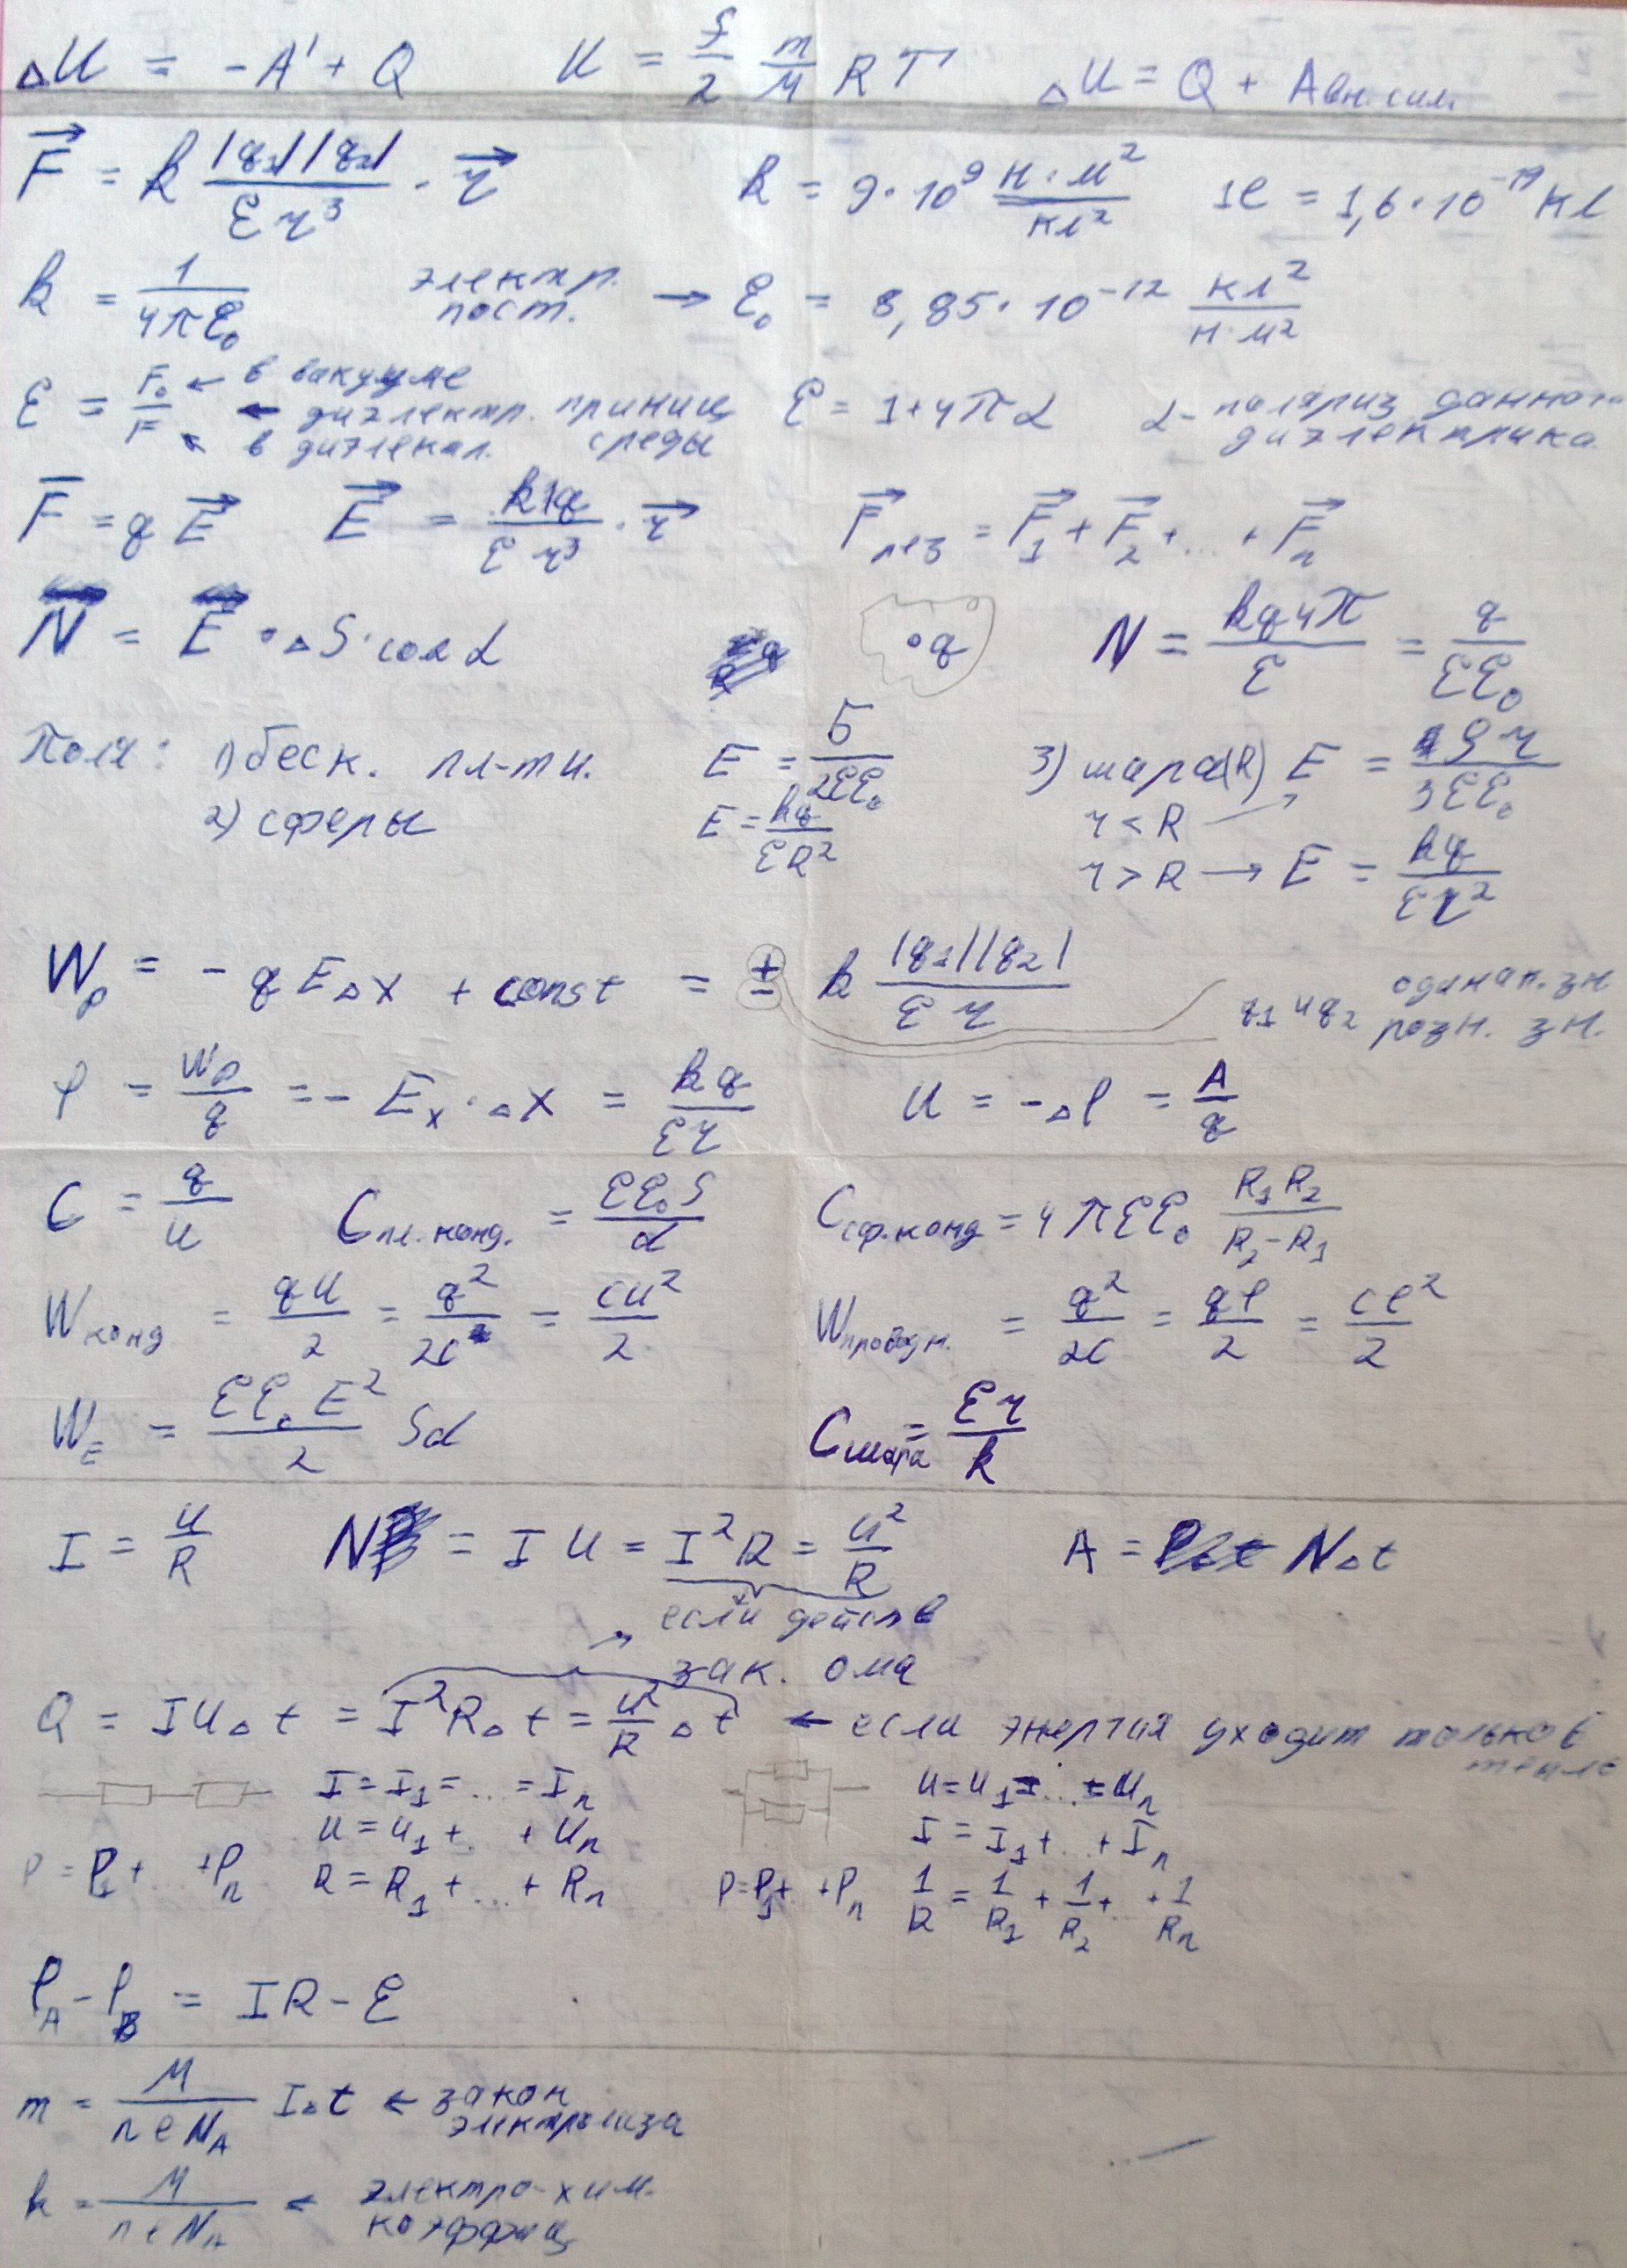 ΔU = -A' + Q U = f/2 m/M RT ΔU = Q + Aвн. сил
F⃗ = k |q1||q2|/εr³ · r⃗ k = 9·10⁹ Н·м²/Кл² 1e = 1,6·10⁻¹⁹ Кл
k = 1/4πε₀ электр. пост. → ε₀ = 8,85·10⁻¹² Кл²/Н·м²
ε = F₀/F ← в вакууме ← диэлектр. прониц среды ← в диэлектр. ε = 1+4πα α - поляриз данного диэлектрика
F̄ = qE⃗ E⃗ = k|q/εr³ · r⃗ F⃗рез = F⃗₁ + F⃗₂ + ... + F⃗n
N = E · ΔS · cos α · q N = kq4π/ε = q/εε₀
Поля: 1) беск. пл-ти. E = σ/2εε₀ 3) шара(R) E = ρr/3εε₀
r < R
2) сферы E = kq/εR² r > R → E = kq/εr²
Wp = - qEΔx + const = ± k |q1||q2|/εr q1 и q2 одинак. зн разн. зн.
φ = Wp/q = - Ex·Δx = kq/εr U = -Δφ = A/q
C = q/U Cпл. конд. = εε₀S/d Cсф. конд = 4πεε₀ R₁R₂/R₂-R₁
Wконд = qU/2 = q²/2C = CU²/2 Wпроводн. = q²/2C = qφ/2 = Cφ²/2
WE = εε₀E²/2 Sd Cшара = εr/k
I = U/R N = IU = I²R = U²/R A = NΔt
если действ
зак. Ома
Q = IUΔt = I²RΔt = U²/R Δt ← если энергия уходит только в тепло
I = I₁ = ... = In U = U₁ = ... = Un
U = U₁ + ... + Un I = I₁ + ... + In
P = P₁ + ... + Pn R = R₁ + ... + Rn P = P₁ + + Pn 1/R = 1/R₁ + 1/R₂ + ... + 1/Rn
φA - φB = IR - ℰ
m = M/neNA IΔt ← закон электролиза
k = M/neNA ← электро-хим. коэффиц